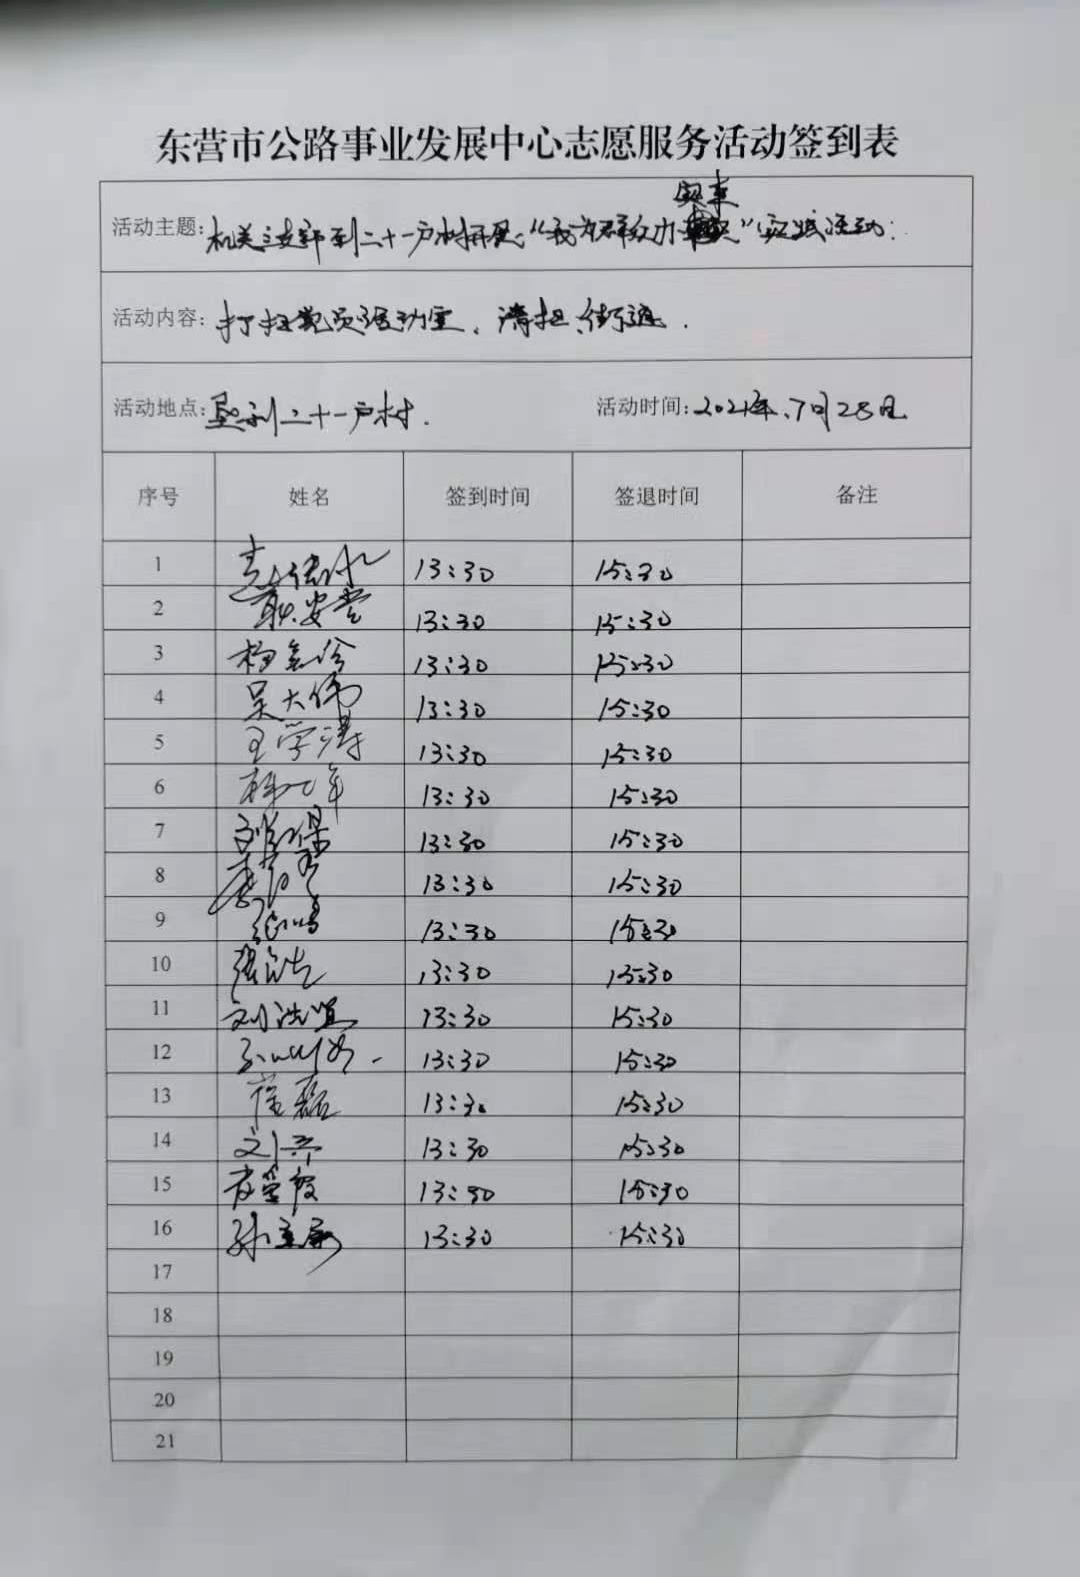 东营市公路事业发展中心志愿服务活动签到表
实事
活动主题: 机关三支部到二十一户村开展“我为群众办”实践活动:
活动内容: 打扫党员活动室、清扫街道.
活动地点: 垦利二十一户村. 活动时间: 2021年7月28日
序号 姓名 签到时间 签退时间 备注
1 13:30 15:30
2 耿安堂 13:30 15:30
3 杨 13:30 15:30
4 吴大伟 13:30 15:30
5 王学涛 13:30 15:30
6 13:30 15:30
7 13:30 15:30
8 13:30 15:30
9 13:30 15:30
10 13:30 15:30
11 刘洪 13:30 15:30
12 13:30 15:30
13 磊 13:30 15:30
14 刘 13:30 15:30
15 13:30 15:30
16 孙 13:30 15:30
17
18
19
20
21